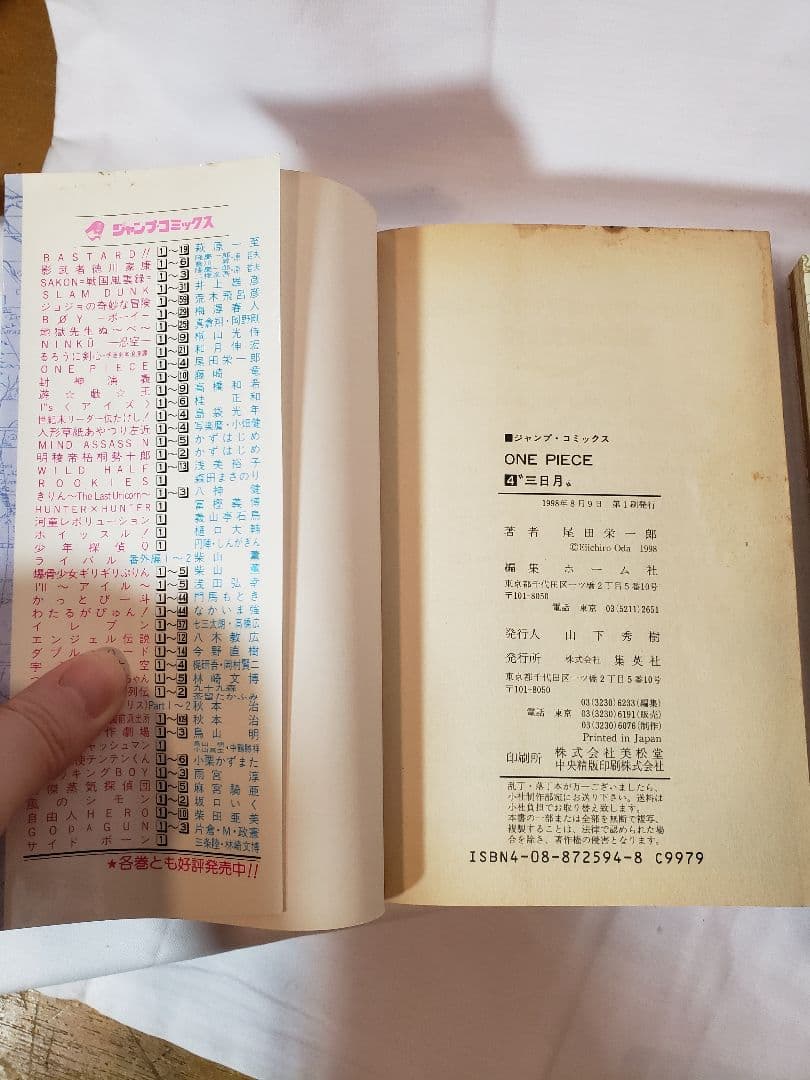 ジャンプ・コミックス
BASTARD!! 1〜19 萩原一至
影武者徳川家康 1〜6
SAKON=戦国風雲録= 1〜3
SLAM DUNK 1〜31 井上雄彦
ジョジョの奇妙な冒険 1〜59 荒木飛呂彦
BØY ーボーイー 1〜29 梅澤春人
地獄先生ぬ〜べ〜 1〜25 真倉翔・岡野剛
NINKŪ ー忍空ー 1〜9 桐山光侍
るろうに剣心 1〜21 和月伸宏
ONE PIECE 1〜4 尾田栄一郎
封神演義 1〜10 藤崎竜
遊☆戯☆王 1〜9 高橋和希
I"s〈アイズ〉 1〜6 桂正和
世紀末リーダー伝たけし! 1〜4 島袋光年
人形草紙あやつり左近 1〜4 写楽麿・小畑健
MIND ASSASSIN 1〜5 かずはじめ
明稜帝梧桐勢十郎 1〜2 かずはじめ
WILD HALF 1〜13 浅美裕子
ROOKIES 1 森田まさのり
きりん〜The Last Unicorn〜 1〜3 八神健
HUNTER×HUNTER 1 冨樫義博
河童レボリューション 1 義山亭石鳥
ホイッスル! 1 樋口大輔
少年探偵Q 1 円陣・しんがぎん
ライバル 番外編1〜2 柴山薫
爆骨少女ギリギリぷりん 1〜5 柴山薫
I'll〜アイル〜 1〜5 浅田弘幸
かっとび一斗 1〜4 門馬もとき
わたるがぴゅん! 1〜44 なかいま強
イレブン 1〜37 七三太朗・高橋広
エンジェル伝説 1〜12 八木教広
ダブル ード 1〜14 今野直樹
宇 空 1〜4 梶研吾・岡村賢二
つ ちゃん 1〜5 林崎文博
列伝 1〜2 九十九森
茶留たかふみ
リス)Part 1〜2 秋本治
園前派出所 秋本治
作劇場 1〜3 鳥山明
ャッシュマン 1 ・中鶴勝祥
使テンテンくん 1〜6 小栗かずまた
ッキングBOY 1〜3 雨宮淳
傑蒸気探偵団 1〜5 麻宮騎亜
風のシモン 1〜2 坂口いく
自由人HERO 1〜10 柴田亜美
GODAGUN 1〜3 片倉・M・政憲
サイドボーン 1 三条陸・林崎文博
★各巻とも好評発売中!!
■ジャンプ・コミックス
ONE PIECE
4 〝三日月〟
1998年8月9日 第1刷発行
著者 尾田栄一郎
©Eiichiro Oda 1998
編集 ホーム社
東京都千代田区一ツ橋2丁目5番10号
〒101-8050
電話 東京 03(5211)2651
発行人 山下秀樹
発行所 株式会社 集英社
東京都千代田区一ツ橋2丁目5番10号
〒101-8050
03(3230)6233(編集)
電話 東京 03(3230)6191(販売)
03(3230)6076(制作)
Printed in Japan
印刷所 株式会社美松堂
中央精版印刷株式会社
乱丁・落丁本が万一ございましたら、
小社制作部宛にお送り下さい。送料は
小社負担でお取り替え致します。
本書の一部または全部を無断で複写、
複製することは、法律で認められた場
合を除き、著作権の侵害となります。
ISBN4-08-872594-8 C9979